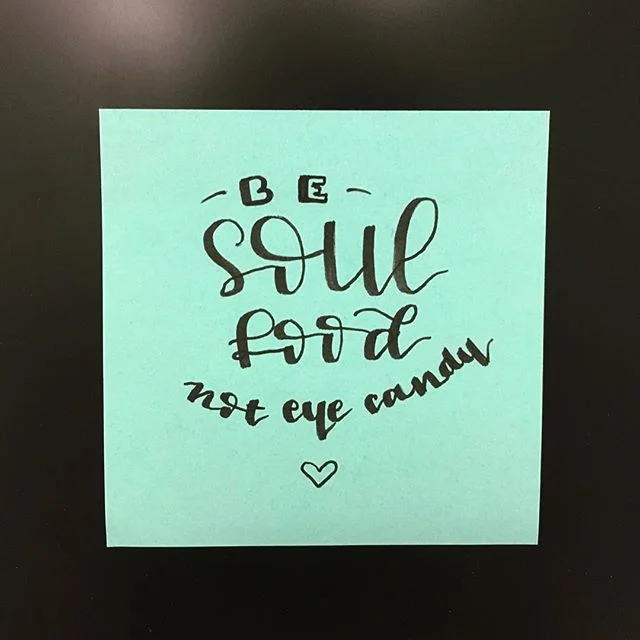 - BE -
soul
food
not eye candy